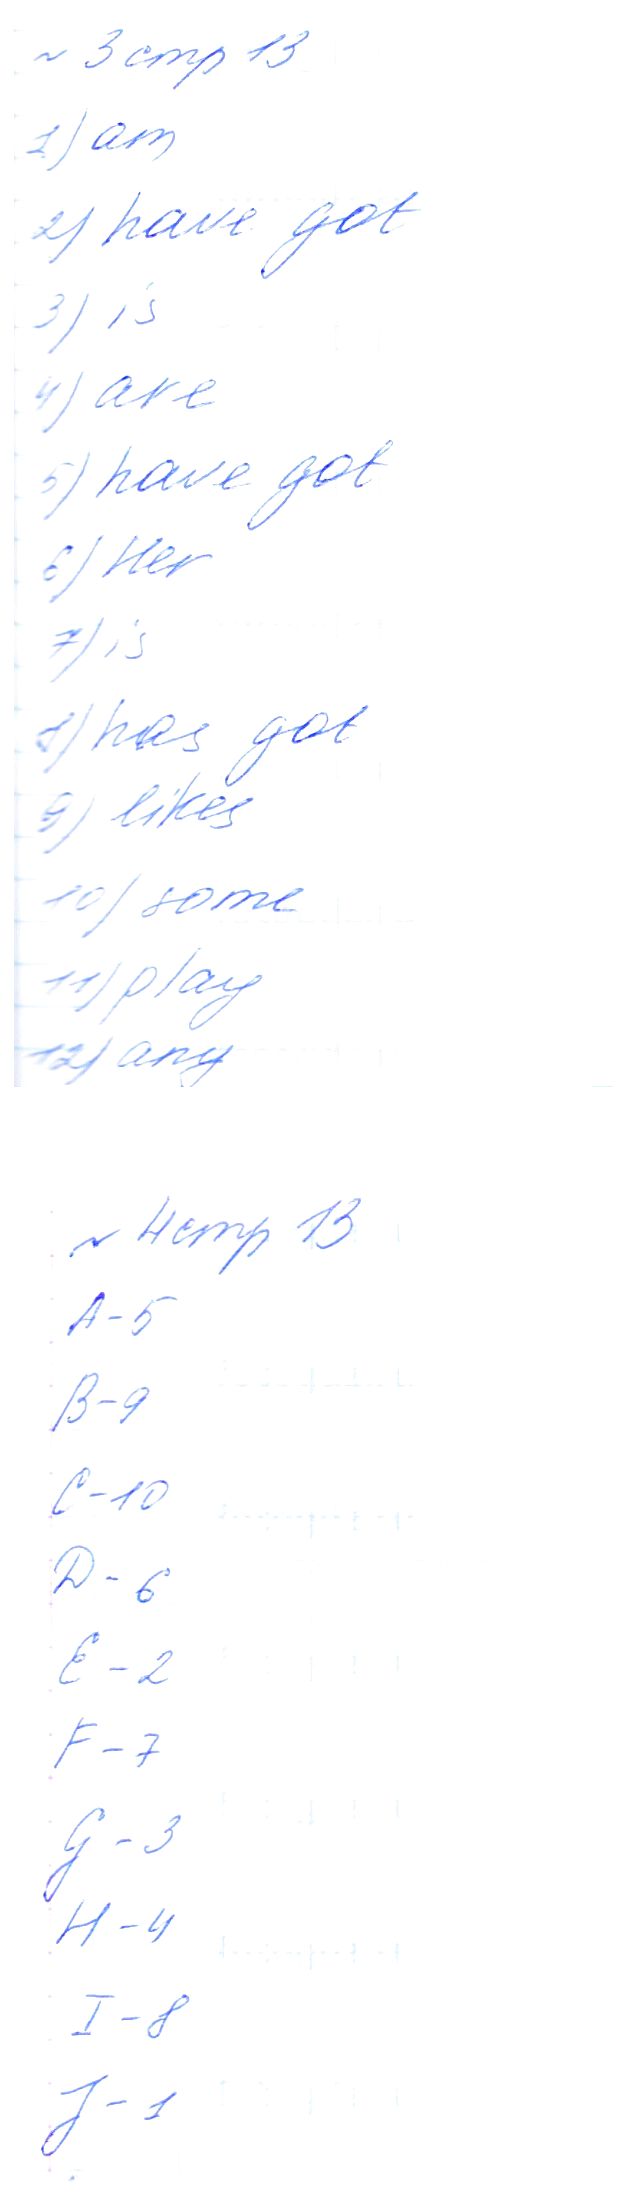 ~ 3 стр 13
1) am
2) have got
3) is
4) are
5) have got
6) Her
7) is
8) has got
9) likes
10) some
11) play
12) any
~ 4 стр 13
A - 5
B - 9
C - 10
D - 6
E - 2
F - 7
G - 3
H - 4
I - 8
J - 1